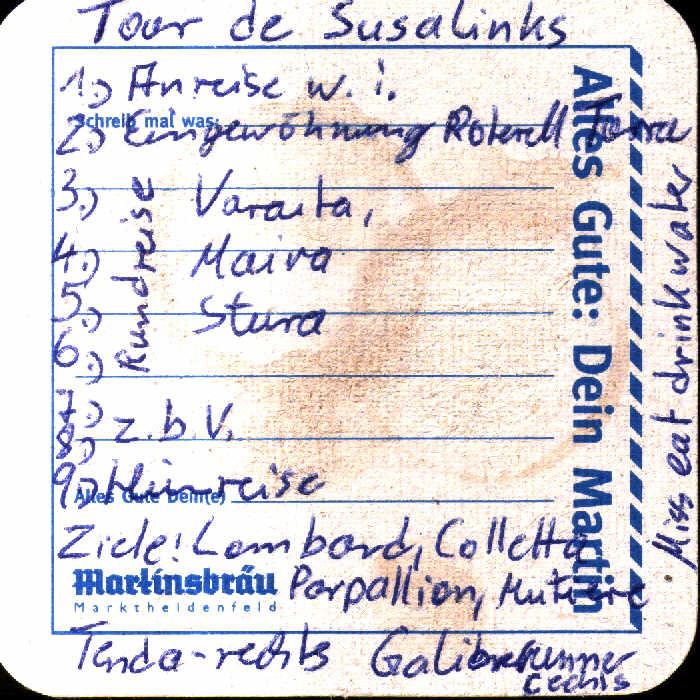 Tour de Susalinks
1.) Anreise w. i.
Schreib mal was:
2.) Eingewöhnung Roterell Torre
3.) Varaita,
4.) Maira
5.) Stura
6.)
Rundreise
7.) z.b.V.
8.)
9.) Heimreise
Alles Gute Dein(e)
Ziele! Lombard, Colletto
Martinsbräu
Marktheidenfeld
Parpallion,
Tenda-rechts
Alles Gute: Dein Martin
Miss eat drink water